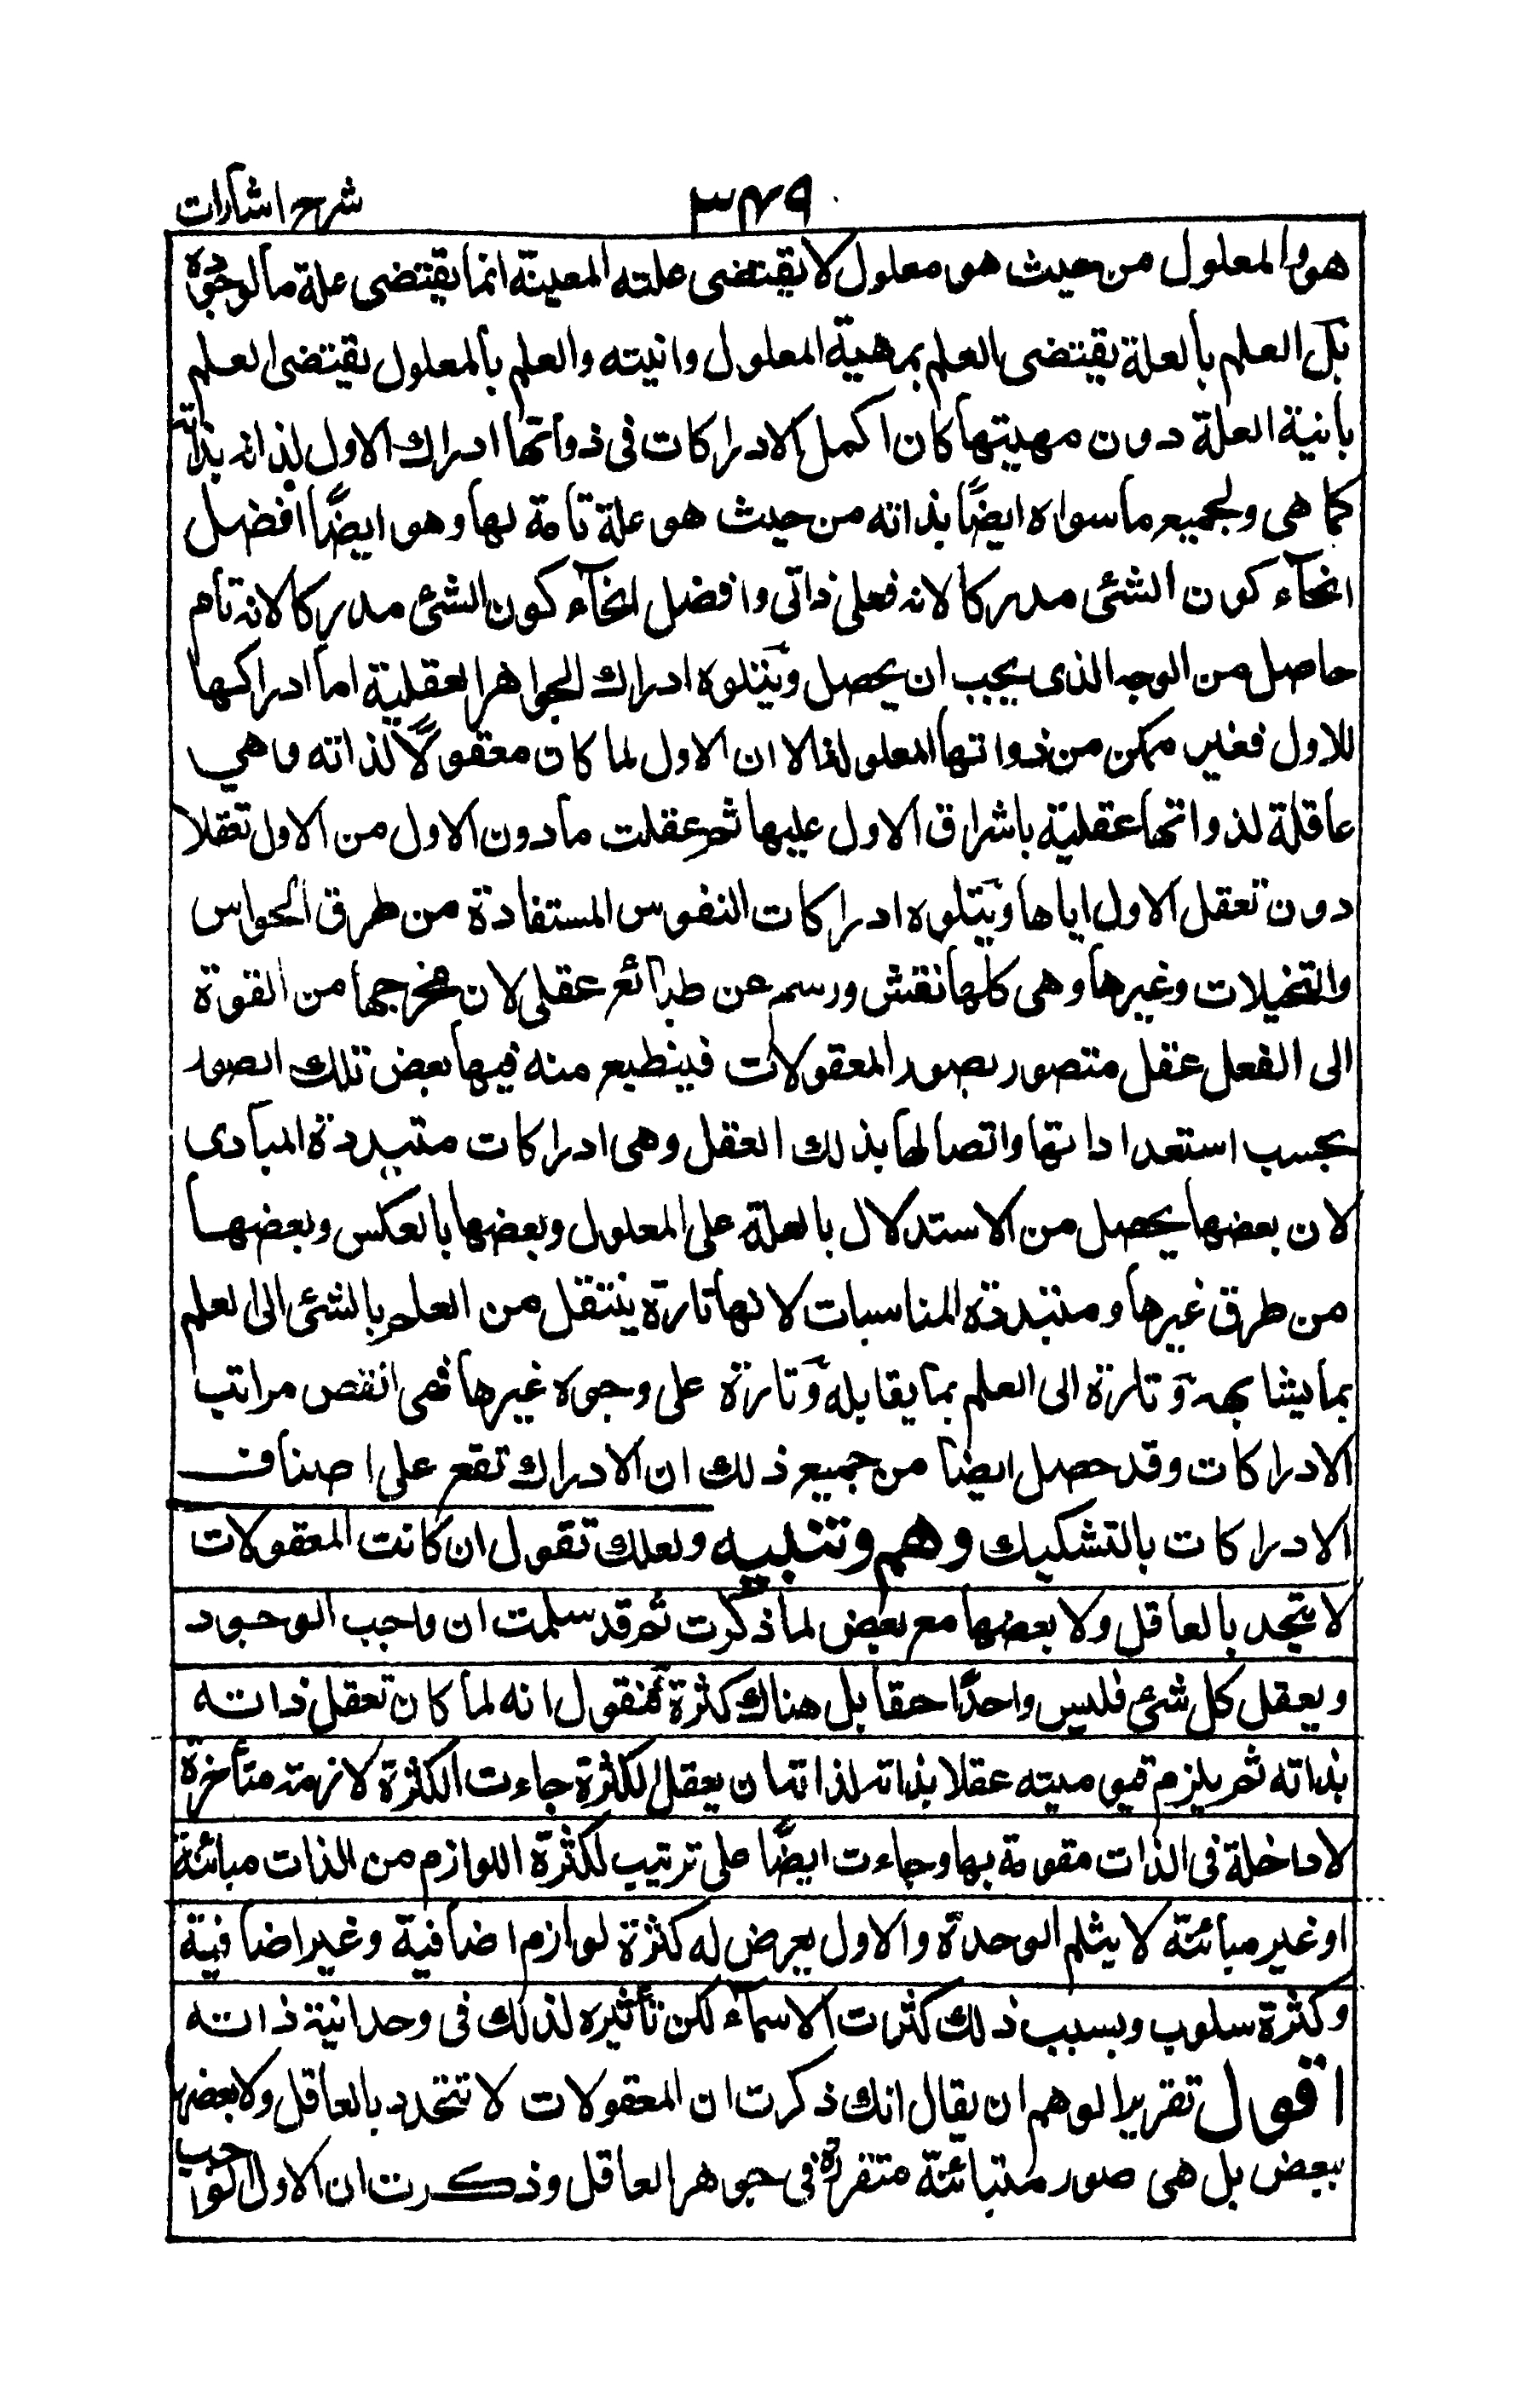 ۳۴۹
شرح اشارات
هو والمعلول من حيث هو معلول لا يقتضى علته المعينة انما يقتضى علة ما لوجوده
بل العلم بالعلة يقتضى العلم بمهية المعلول وانيته والعلم بالمعلول يقتضى العلم
بانية العلة دون مهيتها كان اكمل الادراكات فى ذواتها ادراك الاول لذاته بذاته
كما هى ولجميع ما سواه ايضًا بذاته من حيث هو علة تامة لها وهو ايضًا افضل
انحآء كون الشئى مدركا لانه فعلى ذاتى وافضل انحآء كون الشئ مدركا لانه تام
حاصل من الوجه الذى يجب ان يحصل ويتلوه ادراك الجواهر العقلية اما ادراكها
للاول فغير ممكن من ذواتها المعلولة الا ان الاول لما كان معقولًا لذاته وهي
عاقلة لذواتها عقلية باشراق الاول عليها ثم عقلت ما دون الاول من الاول تعقلا
دون تعقل الاول اياها ويتلوه ادراكات النفوس المستفادة من طرق الحواس
والتخيلات وغيرها وهى كلها نقش ورسم عن طبائع عقلى لان مخرجها من القوة
الى الفعل عقل متصور بصور المعقولات فينطبع منه فيها بعض تلك الصور
بحسب استعداداتها واتصالها بذلك العقل وهى ادراكات متبددة المبادى
لان بعضها يحصل من الاستدلال بالعلة على المعلول وبعضها بالعكس وبعضها
من طرق غيرها ومتبددة المناسبات لانها تارة ينتقل من العلم بالشئى الى العلم
بما يشابهه وتارة الى العلم بما يقابله وتارة على وجوه غيرها فهى انقص مراتب
الادراكات وقد حصل ايضا من جميع ذلك ان الادراك تقع على اصناف
الادراكات بالتشكيك وهم وتنبيه ولعلك تقول ان كانت المعقولات
لا يتحد بالعاقل ولا بعضها مع بعض لما ذكرت ثم قد سلمت ان واجب الوجود
ويعقل كل شئ فليس واحدًا حقا بل هناك كثرة فنقول انه لما كان تعقل ذاته
بذاته ثم يلزم قيوميته عقلا بذاته لذاته ان يعقل الكثرة جاءت الكثرة لازمة متأخرة
لا داخلة فى الذات مقومة بها وجاءت ايضًا على ترتيب لكثرة اللوازم من الذات مبائنة
او غير مبائنة لا يثلم الوحدة والاول يعرض له كثرة لوازم اضافية وغير اضافية
وكثرة سلوب وبسبب ذلك كثرت الاسمآء لكن تأثيره لذلك فى وحدانية ذاته
اقول تقرير الوهم ان يقال انك ذكرت ان المعقولات لا تتحد بالعاقل ولا بعضها
ببعض بل هى صور متبائنة متفررة فى جوهر العاقل وذكرت ان الاول الواجب